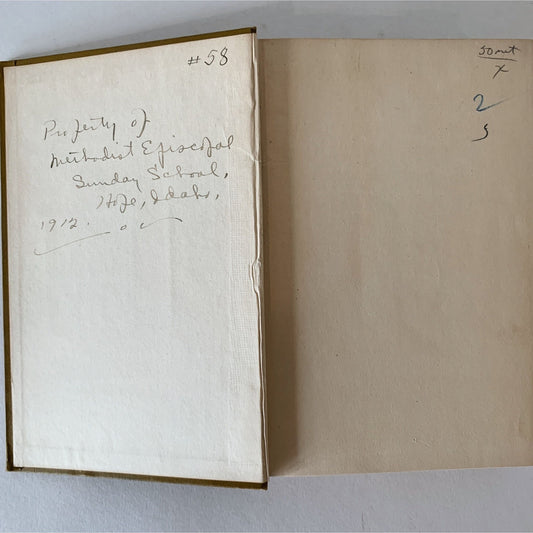 #58
Property of
Methodist Episcopal
Sunday School,
Hope, Idaho,
1912.
50 net
x
2
5